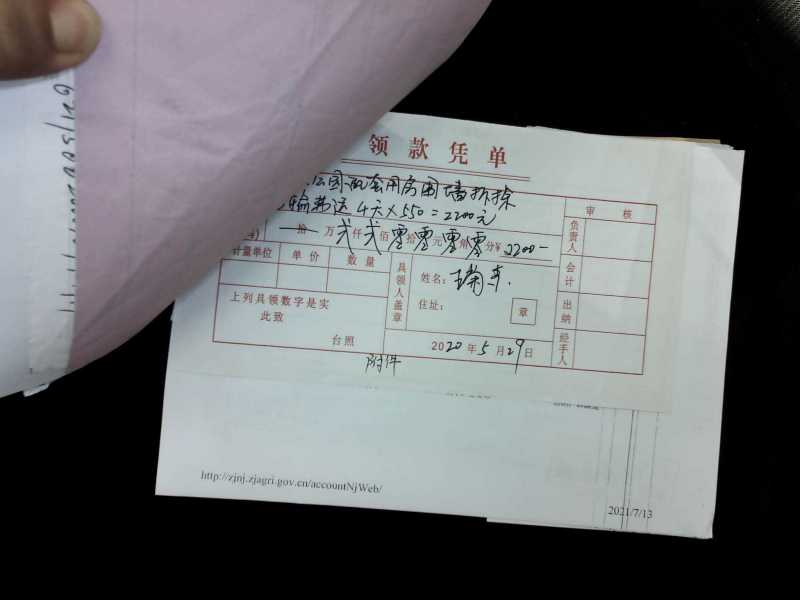 领款凭单
公园配套用房围墙拆除
运 4天×550=2200元
拾 万 贰 仟 贰 佰 零 拾 零 元 零 角 零 分 ¥ 2200-
计量单位 单价 数量
上列具领数字是实
此致
台照
具领人盖章
姓名:
住址:
章
2020年5月29日
审核
负责人
会计
出纳
经手人
附件
http://zjnj.zjagri.gov.cn/accountNjWeb/
2021/7/13